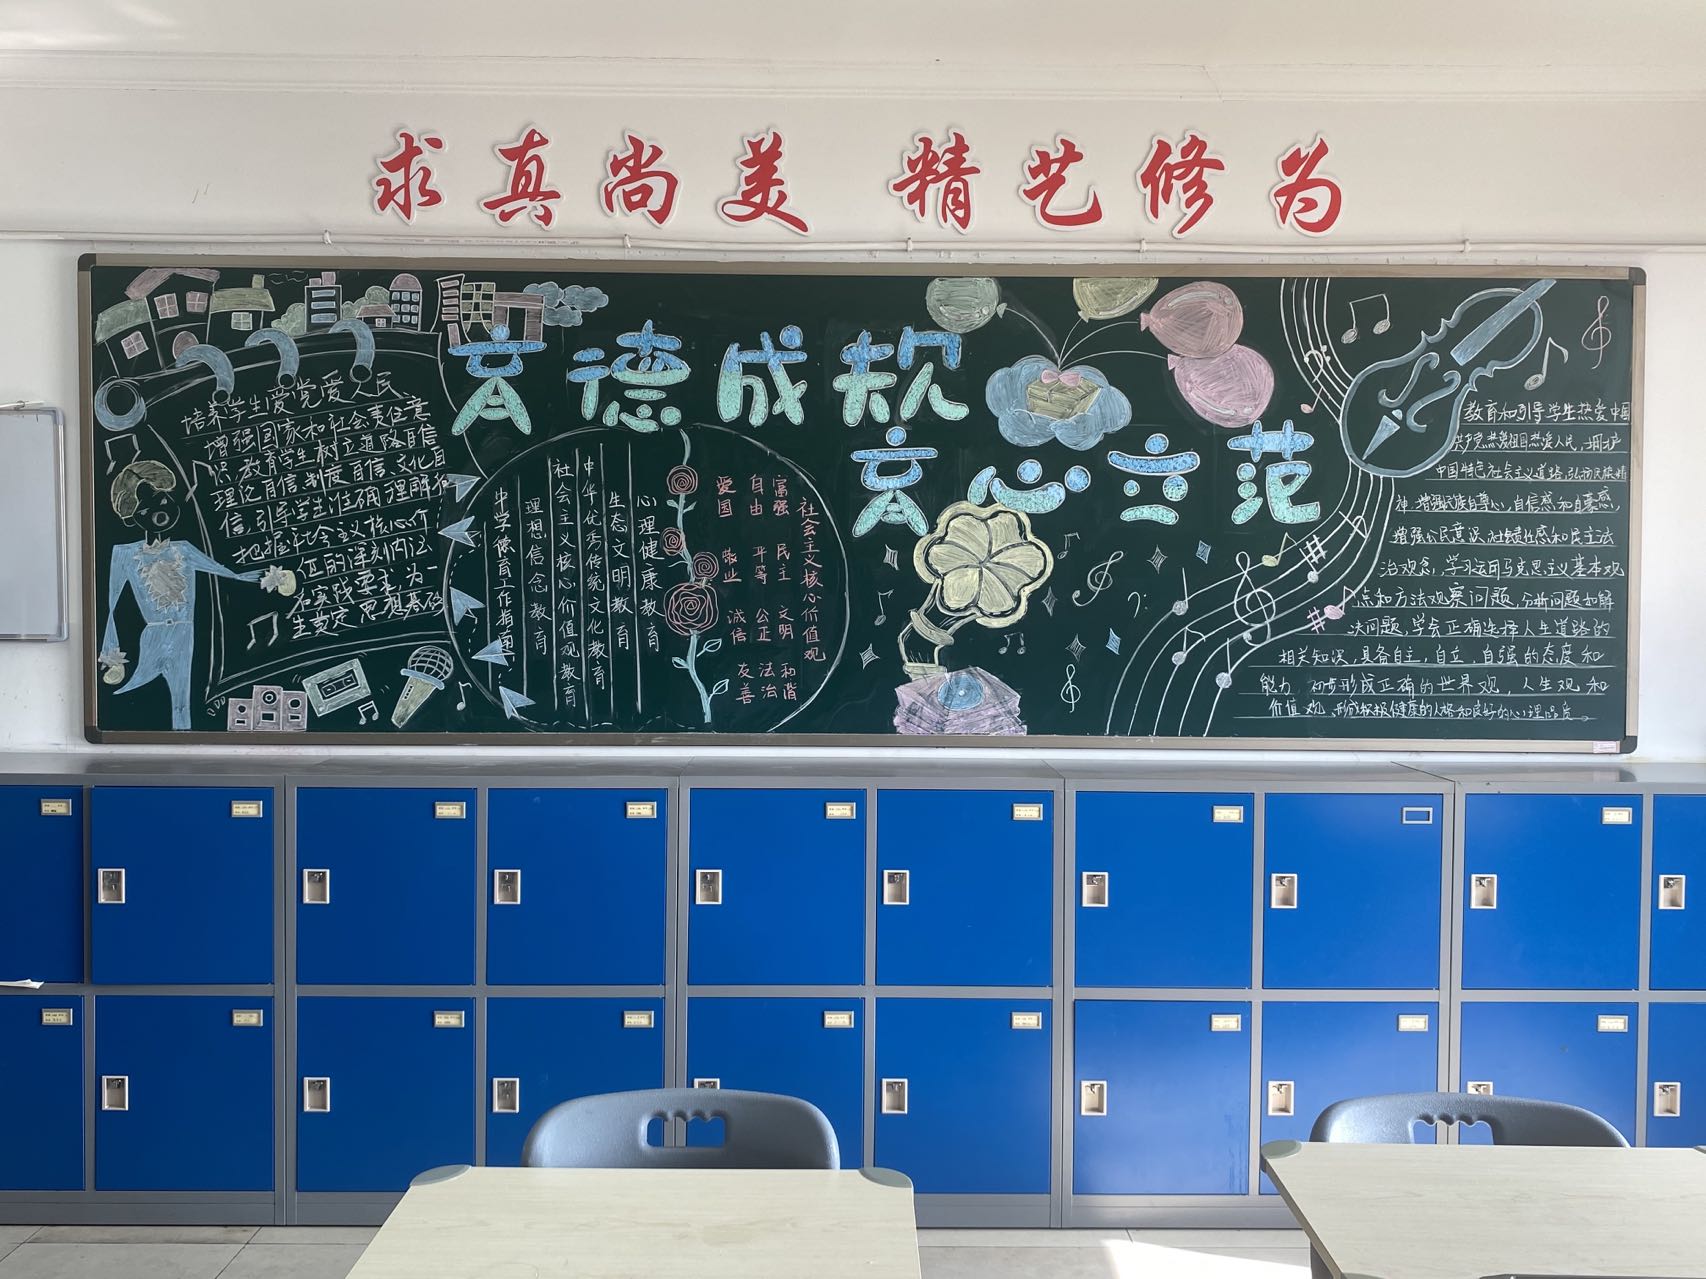 求真尚美 精艺修为
育德成规
育心立范
培养学生爱党爱人民
增强国家和社会责任意
识,教育学生树立道路自信
理论自信,制度自信,文化自
信,引导学生准确理解和
把握社会主义核心价
值的深刻内法
和实践要求,为一
生奠定思想基础
心理健康教育
生态文明教育
中华优秀传统文化教育
社会主义核心价值观教育
理想信念教育
中学德育工作指南
社会主义核心价值观
富强 民主 文明 和谐
自由 平等 公正 法治
爱国 敬业 诚信 友善
教育和引导学生热爱中国
热爱祖国热爱人民,拥护
中国特色社会主义道路,弘扬民族精
神,增强民族自尊心,自信感和自豪感,
增强公民意识,社会责任感和民主法
治观念,学习运用马克思主义基本观
点和方法观察问题,分析问题和解
决问题,学会正确选择人生道路的
相关知识,具备自主,自立,自强的态度和
能力,初步形成正确的世界观,人生观和
价值观,形成积极健康的人格和良好的心理品质。